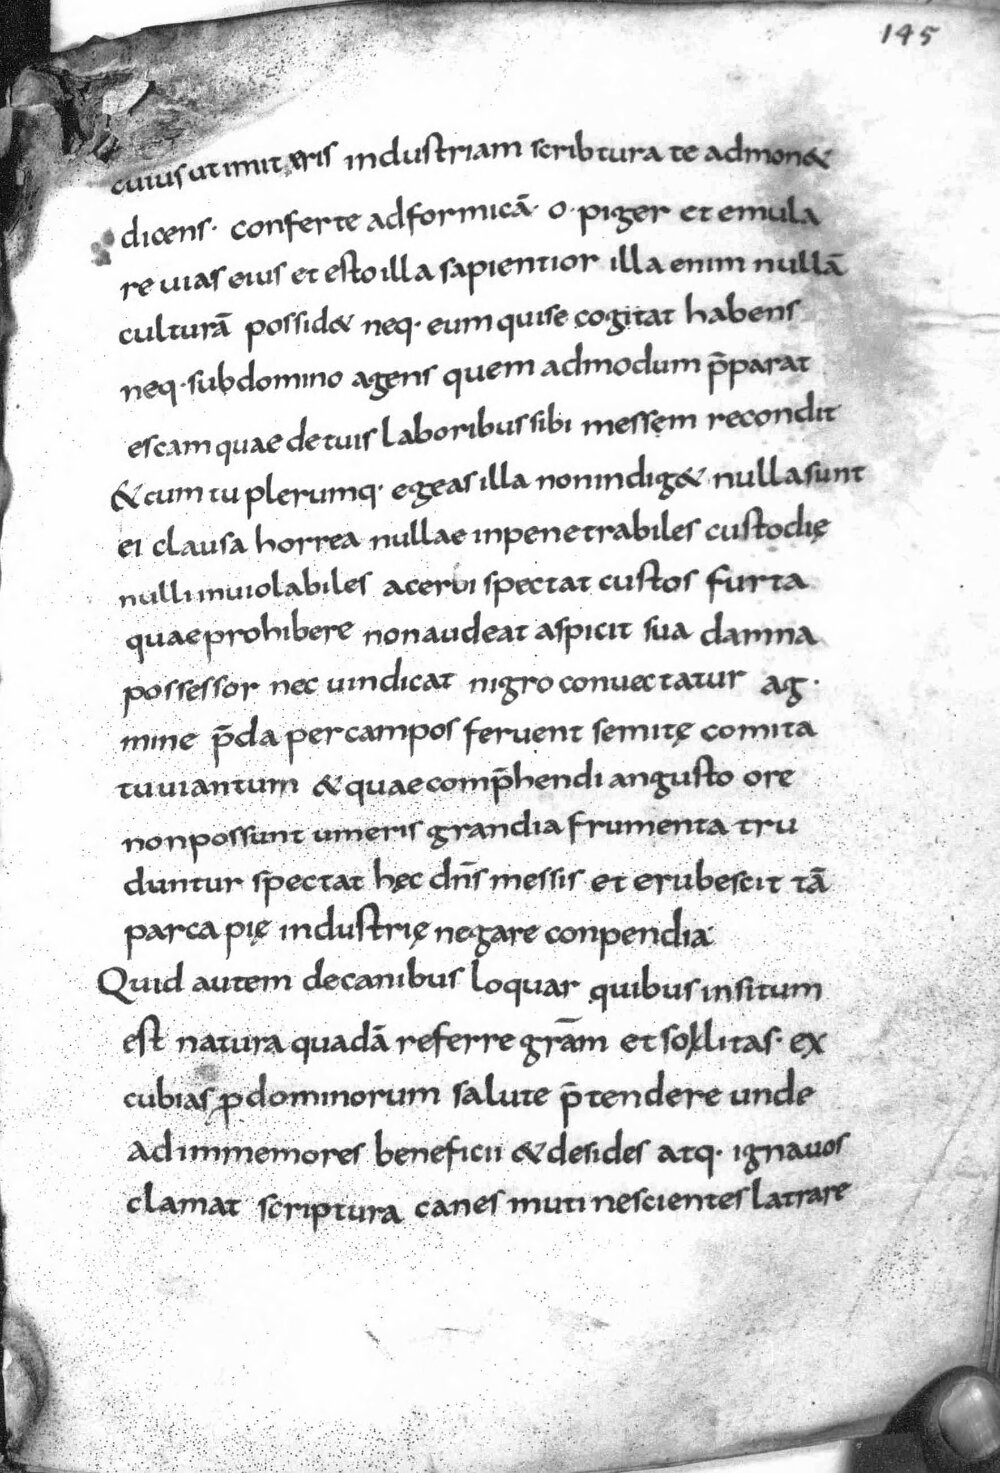 145
cuius ut imit eris industriam scribtura te admon&
dicens· conferte adformicā· o· piger et emula
re uias eius et esto illa sapientior illa enim nullā
culturā possid& neq· eum quise cogitat habens
neq· subdomino agens quem admodum p̄parat
escam quae detuis laboribus sibi messem recondit
& cum tu plerumq· egeas illa nonindig& nulla sunt
ei clausa horrea nullae inpenetrabiles custodię
nulli inuiolabiles acerui spectat custos furta
quae prohibere non audeat aspicit sua damna
possessor nec uindicat nigro conuectatur ag·
mine p̄da per campos feruent semitę comita
tu uiantum & quae comp̄hendi angusto ore
non possunt umeris grandia frumenta tru
duntur spectat hęc dn̄s messis et erubescit tā
parca pię industrię negare conpendia
Quid autem decanibus loquar quibus insitum
est natura quadā referre gr̄am et sollitas· ex
cubias ꝓ dominorum salute p̄tendere unde
ad immemores beneficii & desides atq· ignauos
clamat scriptura canes muti nescientes latrare